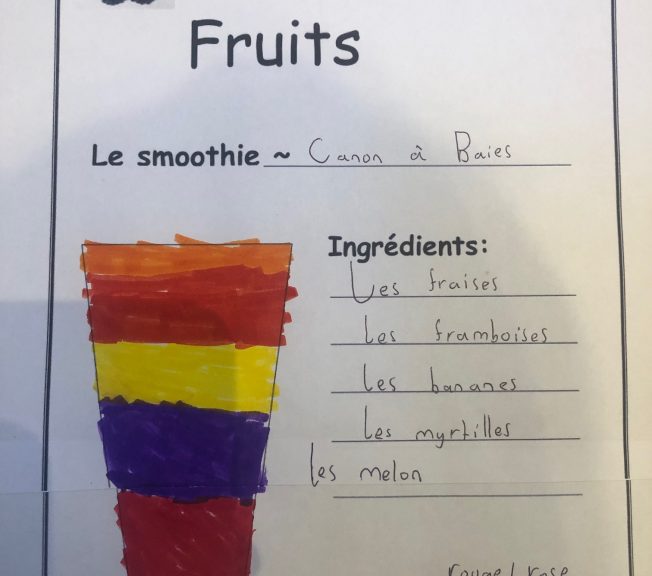 Fruits
Le smoothie ~ Canon à Baies
Ingrédients:
Les fraises
Les framboises
Les bananes
Les myrtilles
Les melon
rouge/rose